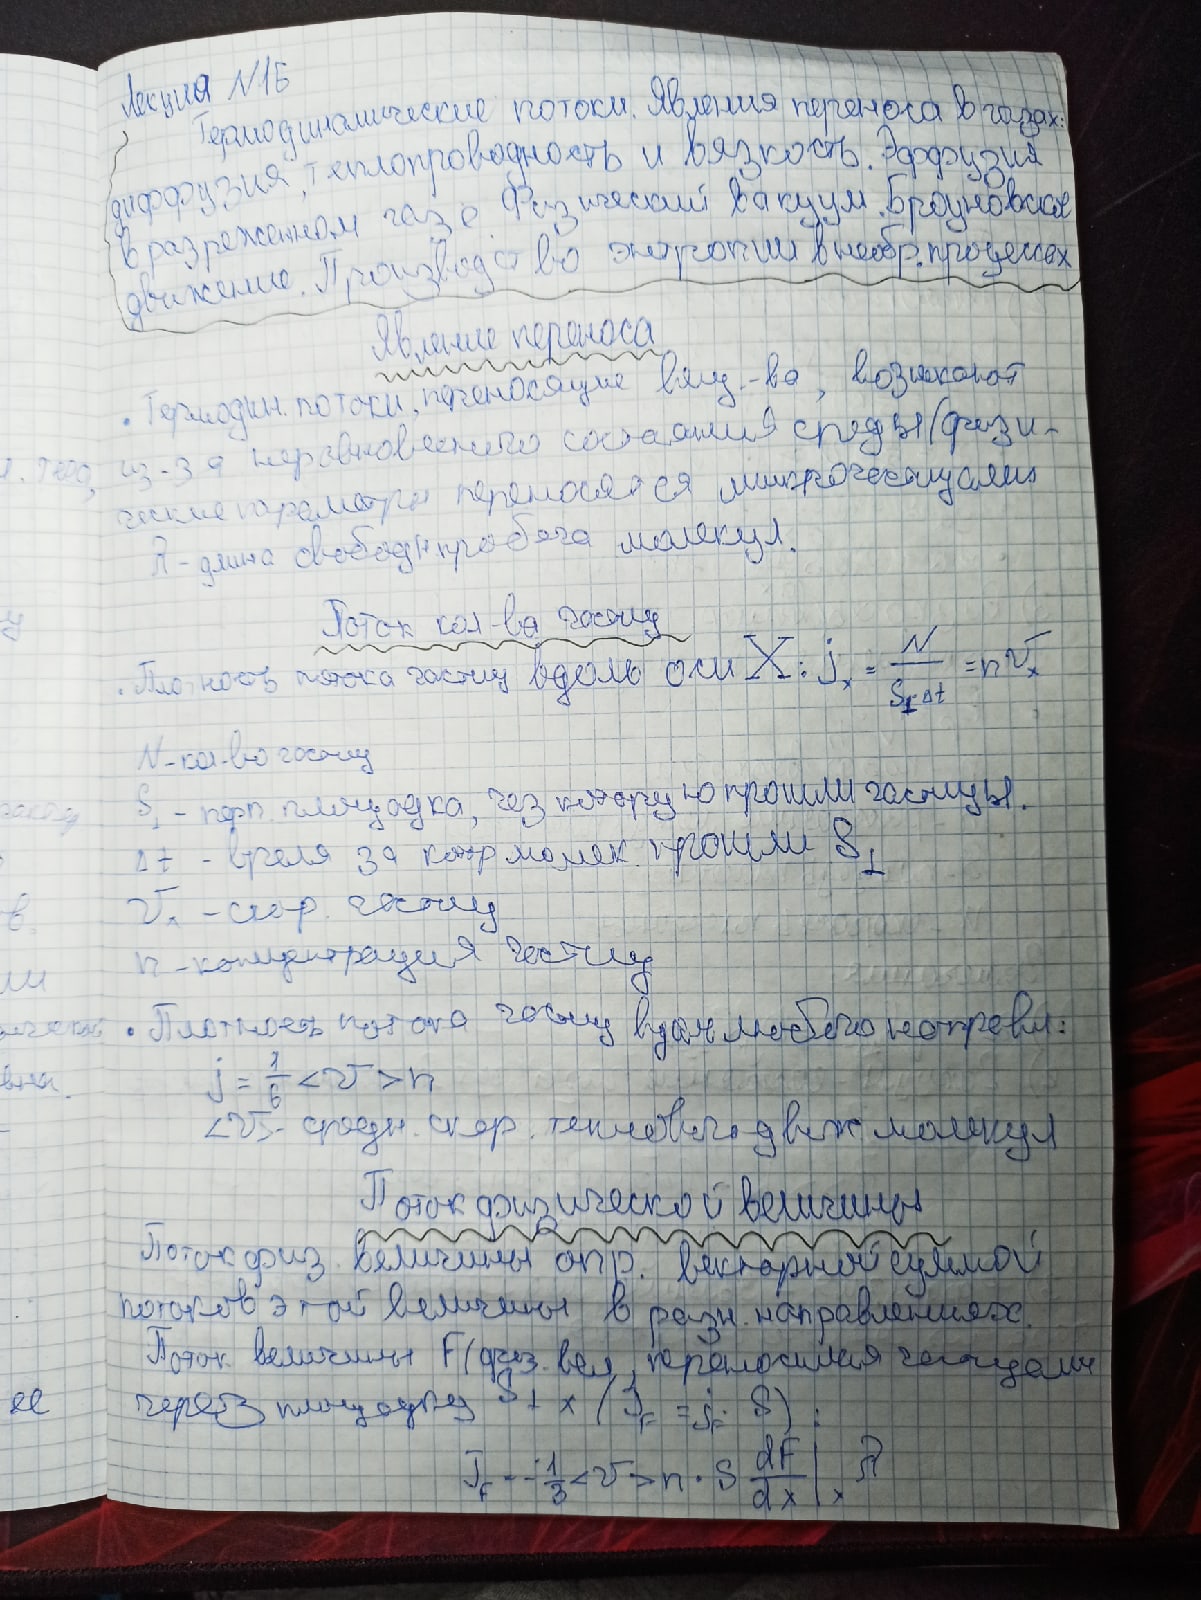 Лекция №15
Термодинамические потоки. Явления переноса в газах:
диффузия, теплопроводность и вязкость. Эффузия
в разреженном газе. Физический вакуум. Броуновское
движение. Производство энтропии в необр. процессах
Явление переноса
• Термодин. потоки, переносящие вещ-ва, возникают
из-за неравновесного состояния среды (физи-
ческие параметры переносятся микрочастицами
λ - длина свободн пробега молекул.
Поток кол-ва частиц
• Плотность потока частиц вдоль оси X: jₓ = N / S⊥·Δt = nVₓ
N - кол-во частиц
S⊥ - перп площадка, чез которую прошли частицы.
Δt - время за котр молек. прошли S⊥
Vₓ - скор. частиц
n - концентрация частиц
• Плотность потока частиц вдоль любого направл:
j = 1/6 <V> n
<V> - средн. скор. теплового движ молекул
Поток физической величины
Поток физ. величины опр. векторной суммой
потоков этой величины в разн. направлениях.
Поток величины F (физ. вел, переносимая частицами
через площадку S⊥ x (J_F = j_F · S) :
J_F = -1/3 <V> n · S dF/dx |ₓ λ
ее